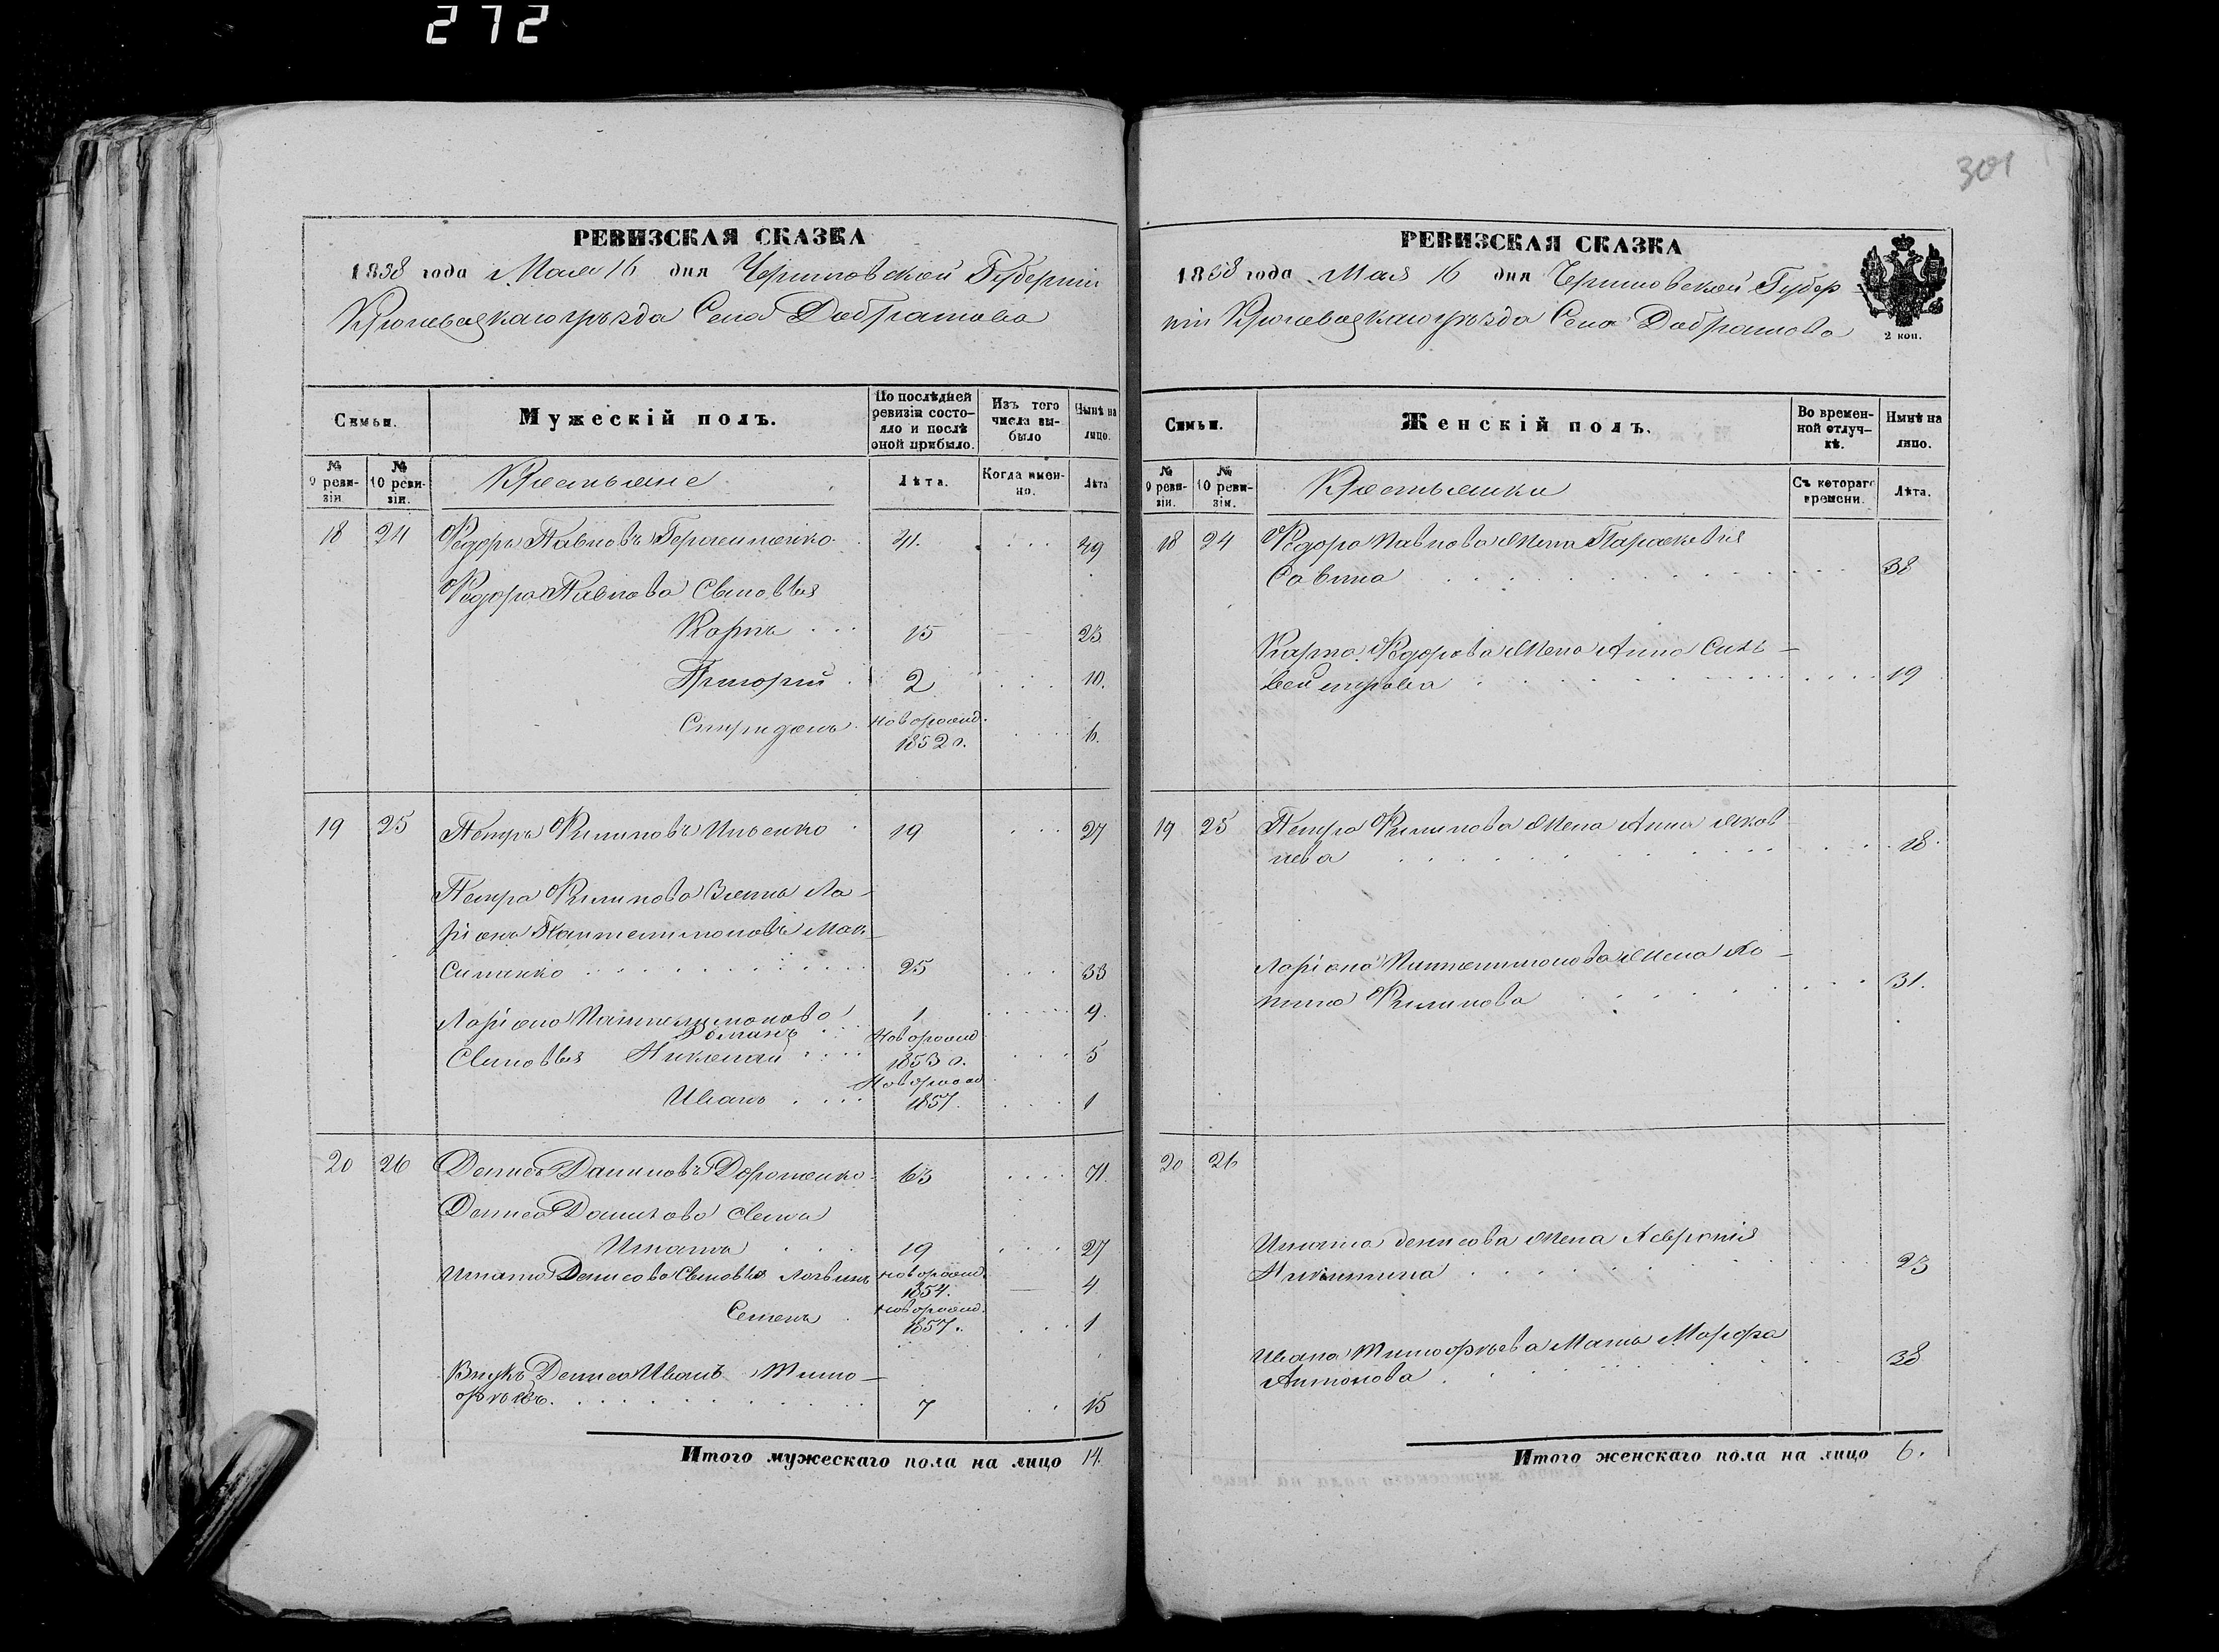 272
301
РЕВИЗСКАЯ СКАЗКА
1858 года Мая 16 дня Черниговской Губерніи
Кролевецкаго уѣзда Села Добратова
Семьи.
Мужескій полъ.
По послѣдней ревизіи состояло и послѣ оной прибыло.
Изъ того числа выбыло
Нынѣ на лицо.
№ 9 ревизіи.
№ 10 ревизіи.
Крестьяне
Лѣта.
Когда именно.
Лѣта
18 24 Федоръ Павловъ 41. 49
Федора Павлова Сыновья
Карпъ 15 23.
Григорій 2 10.
Спиридонъ новорожд. 1852 г. 6.
19 25 Петръ Филиповъ Ильенко 19 27
Петра Филипова Зять Ла-
ріонъ Пантелимоновъ Мак-
сименко 25 33
Ларіона Пантелимонова
Романъ 1 9.
Сыновья Николай Новорожд 1853 г. 5
Иванъ Новорожд 1857. 1
20 26 Денисъ Даниловъ Дорошенко 63 71.
Дениса Данилова сынъ
Игнатъ 19 27
Игната Денисова Сыновья Логвинъ новорожд. 1854. 4
Семенъ новорожд. 1857. 1
Внукъ Дениса Иванъ Тимо-
фѣевъ. 7 15
Итого мужескаго пола на лицо 14.
РЕВИЗСКАЯ СКАЗКА
1858 года Мая 16 дня Черниговской Губер-
ніи Кролевецкаго уѣзда Села Добратова
2 коп.
Семьи.
Женскій полъ.
Во временной отлучкѣ.
Нынѣ на лицо.
№ 9 ревизіи.
№ 10 ревизіи.
Крестьянки
Съ котораго времени.
Лѣта.
18 24 Федора Павлова Жена Параскевія
Савина 38
Карпа Федорова Жена Анна Силь-
вестрова 19
19 25 Петра Филипова Жена Анна Яков-
лева 18.
Ларіона Пантелимонова Жена
Филипова 31.
20 26
Игната Денисова Жена Февронія
Никитина 23
Ивана Тимофѣева Мать Марфа
Антонова 38
Итого женскаго пола на лицо 6.